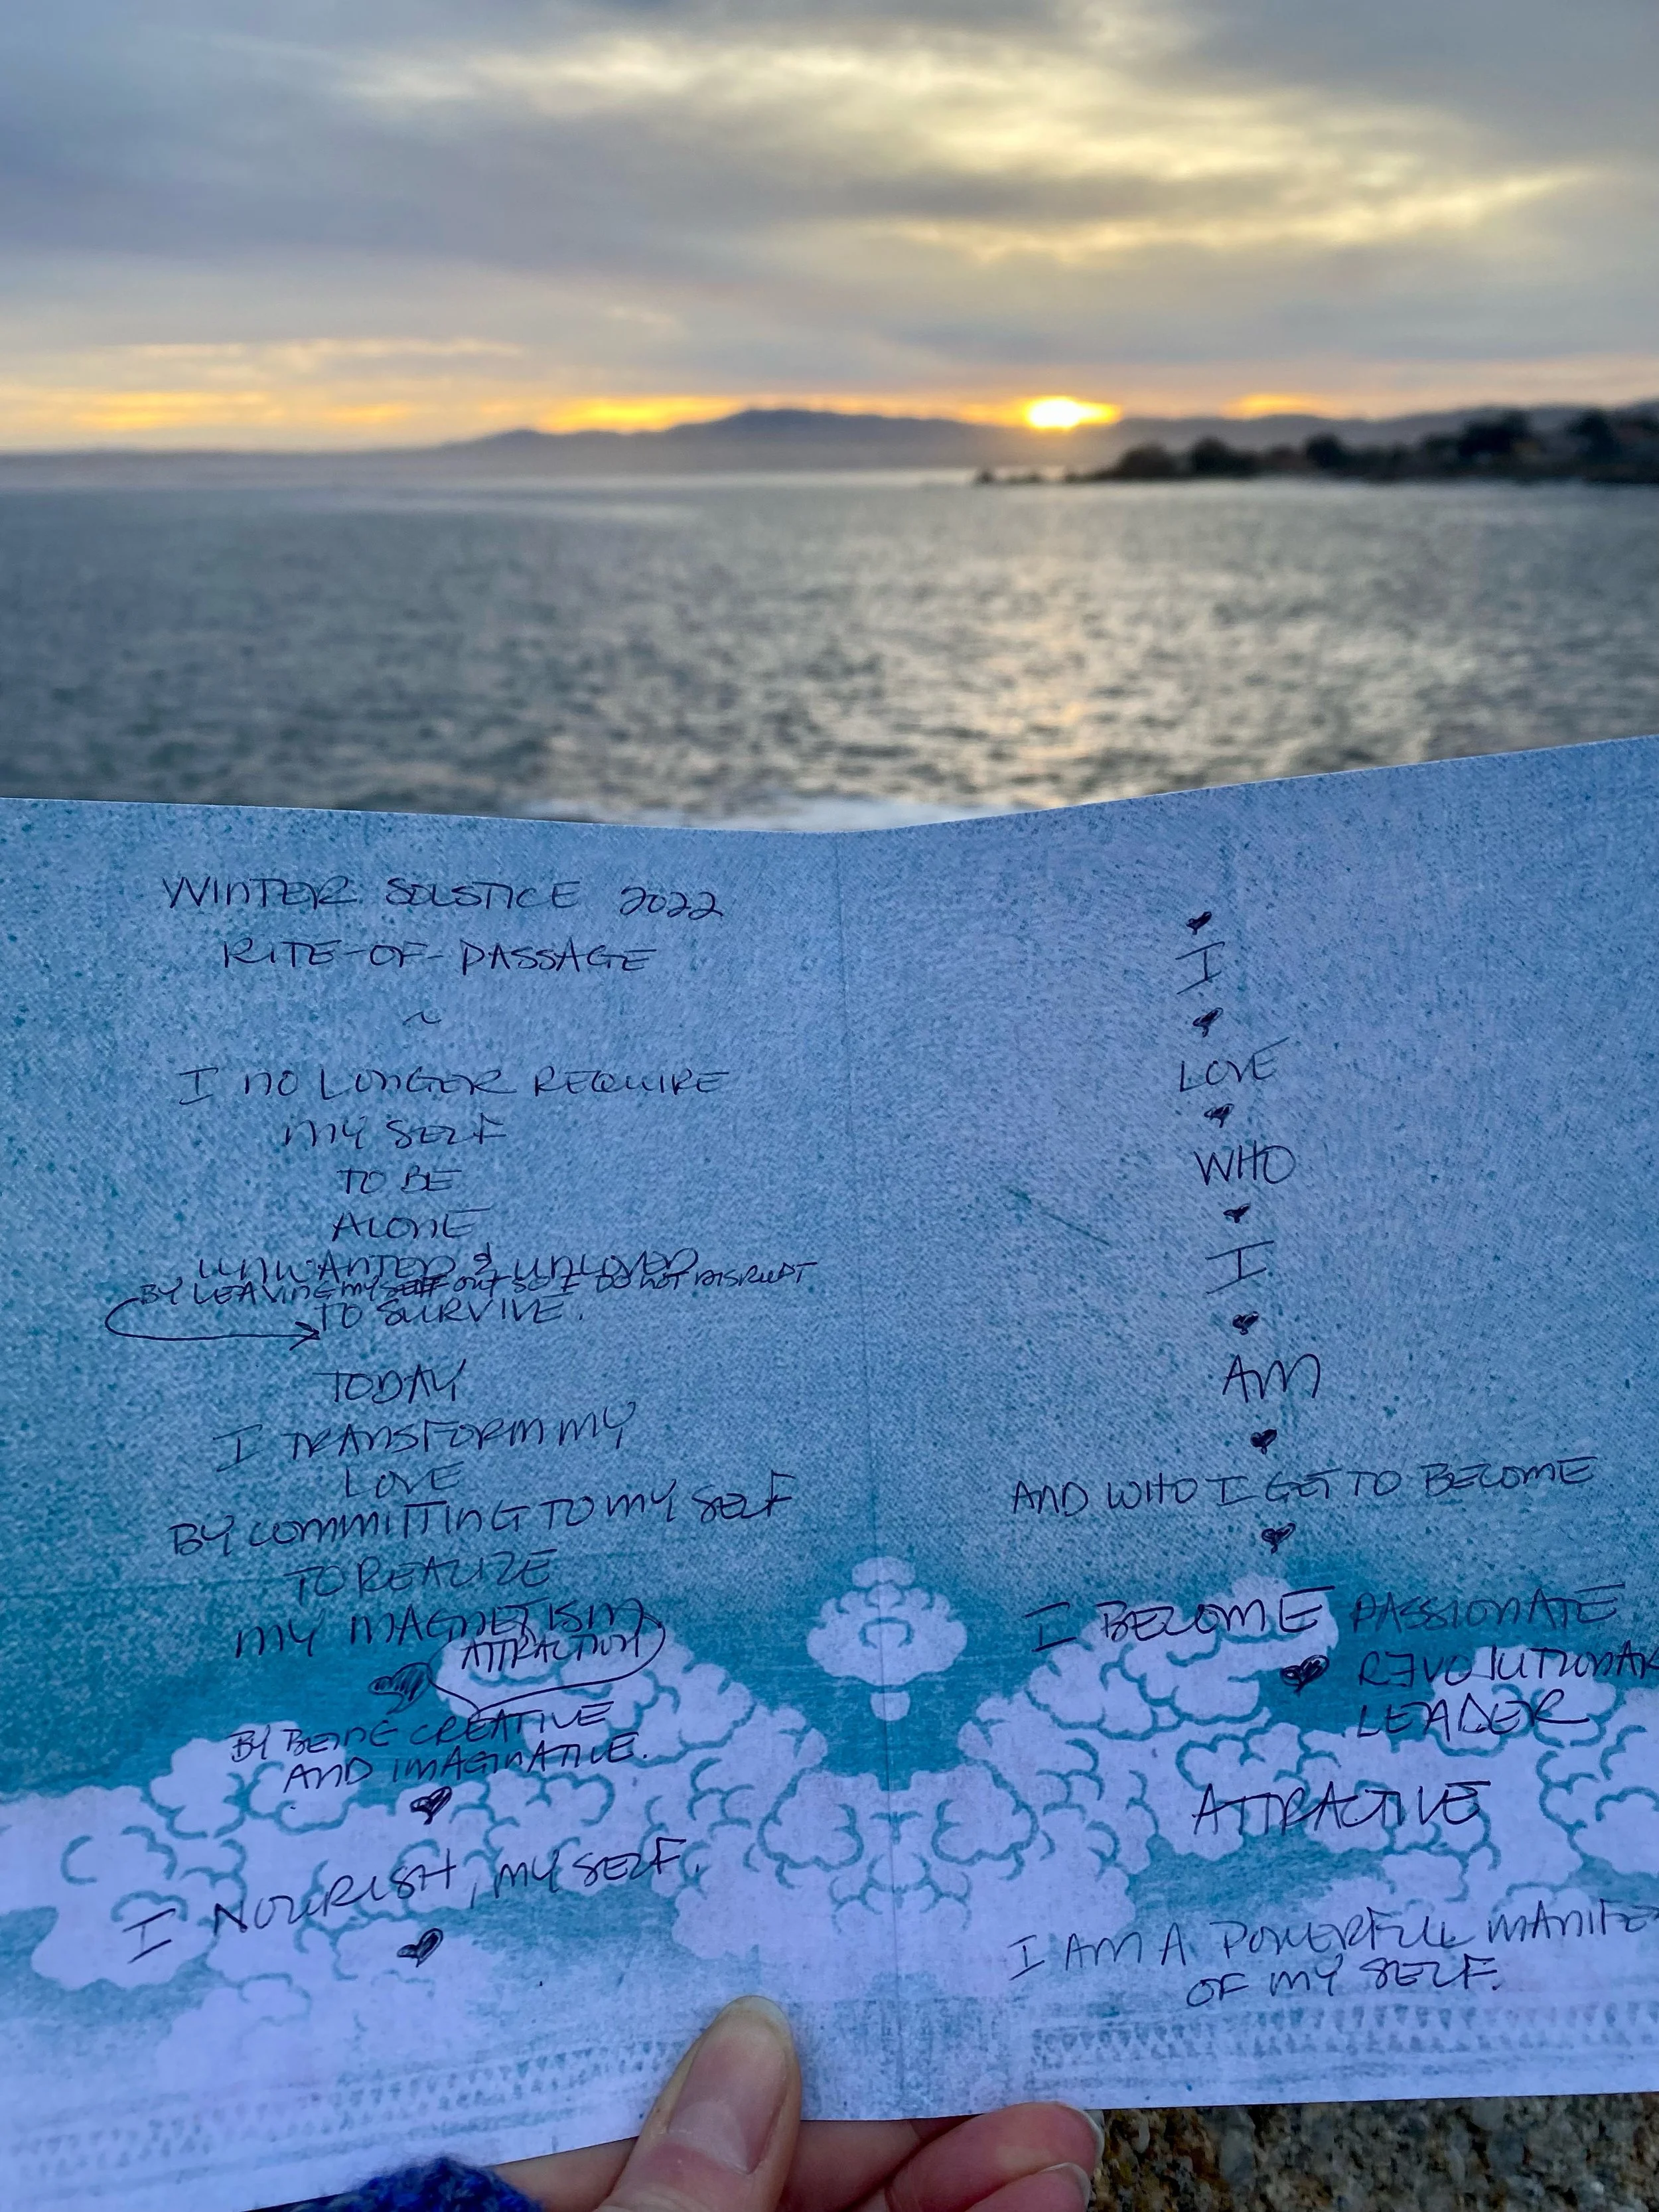 WINTER SOLSTICE 2022
RITE-OF-PASSAGE
~
I NO LONGER REQUIRE
MY SELF
TO BE
ALONE
UNWANTED & UNLOVED
BY LEAVING MYSELF OUT SO I DO NOT DISRUPT
TO SURVIVE.
TODAY
I TRANSFORM MY
LOVE
BY COMMITTING TO MY SELF
TO REALIZE
MY MAGNETISM
ATTRACTION
BY BEING CREATIVE
AND IMAGINATIVE.
I NOURISH, MY SELF.
I
LOVE
WHO
I
AM
AND WHO I GET TO BECOME
I BECOME PASSIONATE
REVOLUTIONAR
LEADER
ATTRACTIVE
I AM A POWERFUL MANIFE
OF MY SELF.